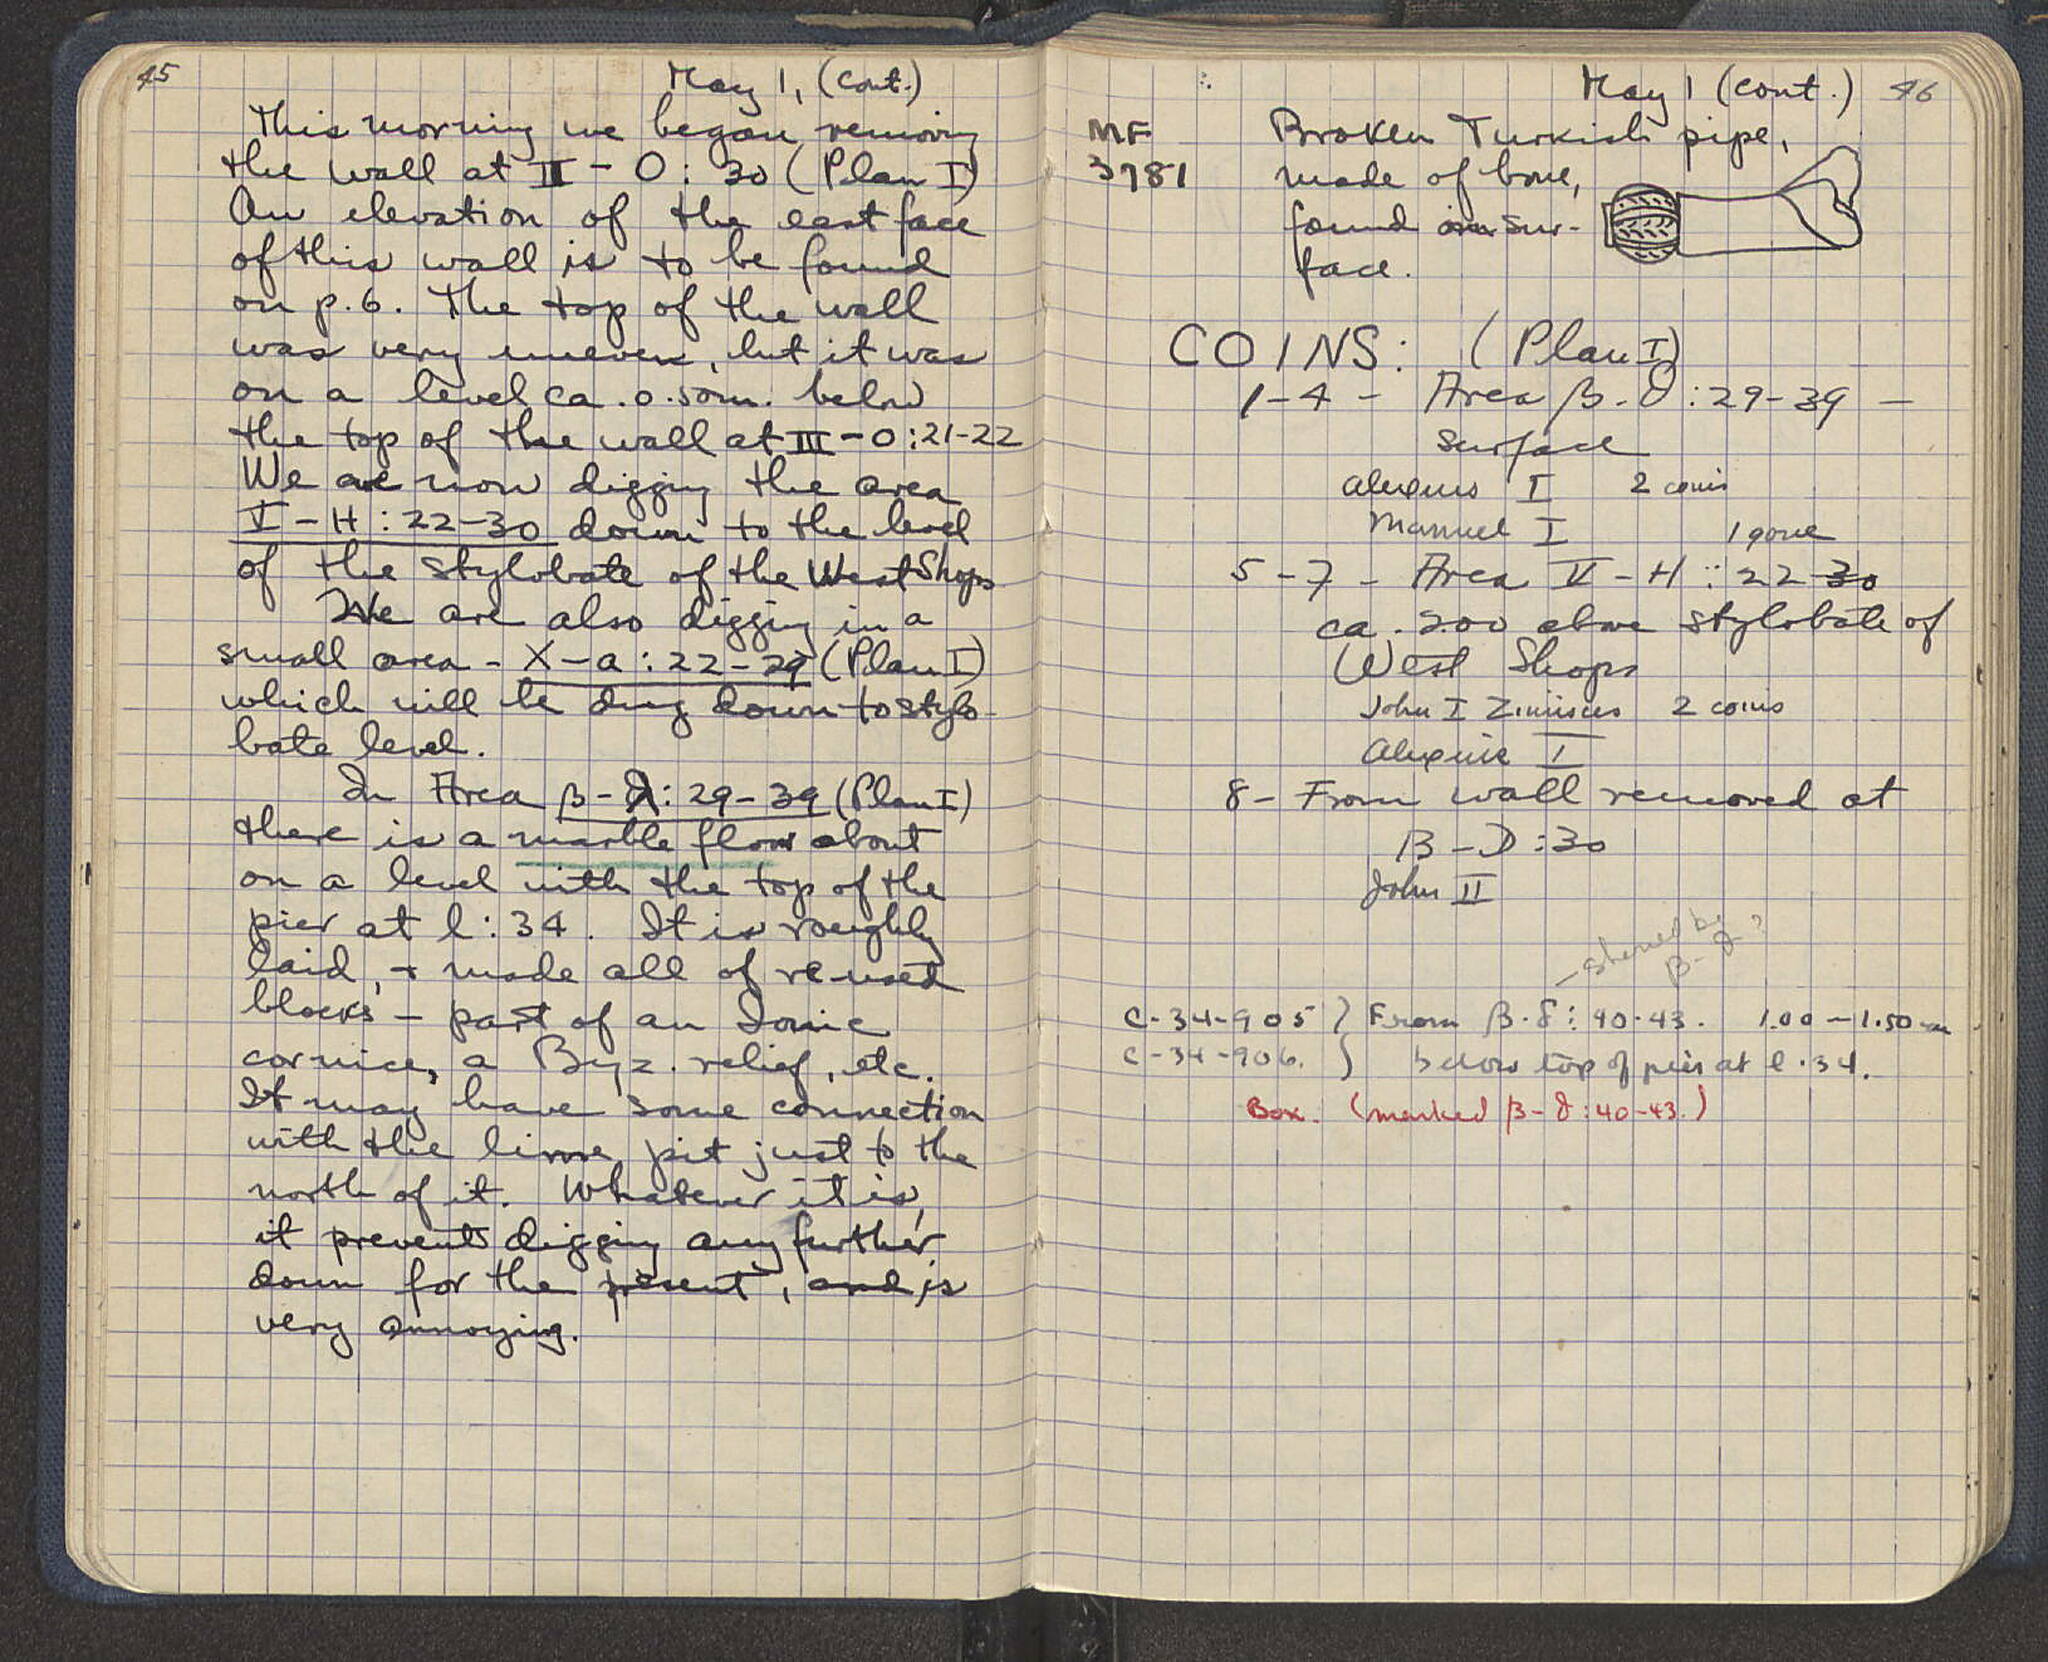 45
May 1, (cont.)
This morning we began removing
the wall at III - O : 30 (Plan I)
An elevation of the east face
of this wall is to be found
on p. 6. The top of the wall
was very uneven, but it was
on a level ca. 0.50m. below
the top of the wall at III - O : 21-22
We are now digging the area
V - H : 22-30 down to the level
of the stylobate of the West Shops
We are also digging in a
small area - X - a : 22 - 29 (Plan I)
which will be dug down to stylo-
bate level.
In Area β - : 29 - 39 (Plan I)
there is a marble floor about
on a level with the top of the
pier at l : 34. It is roughly
laid, + made all of re-used
blocks - part of an Ionic
cornice, a Byz. relief, etc.
It may have some connection
with the lime pit just to the
north of it. Whatever it is,
it prevents digging any further
down for the present, and is
very annoying.
May 1 (cont.) 46
MF
3781
Broken Turkish pipe,
made of bone,
found on sur-
face.
COINS: (Plan I)
1-4 - Area β - δ : 29-39 -
surface
Alexius I 2 coins
Manuel I 1 gone
5-7 - Area V - H : 22-30
ca. 2.00 above stylobate of
West Shops
John I Zimisces 2 coins
Alexius I
8 - From wall removed at
B - D : 30
John II
β - δ ?
C-34-905 ) From β - δ : 40-43. 1.00 - 1.50 m
C-34-906. ) below top of pier at l.34.
Box. (marked β - δ : 40-43.)